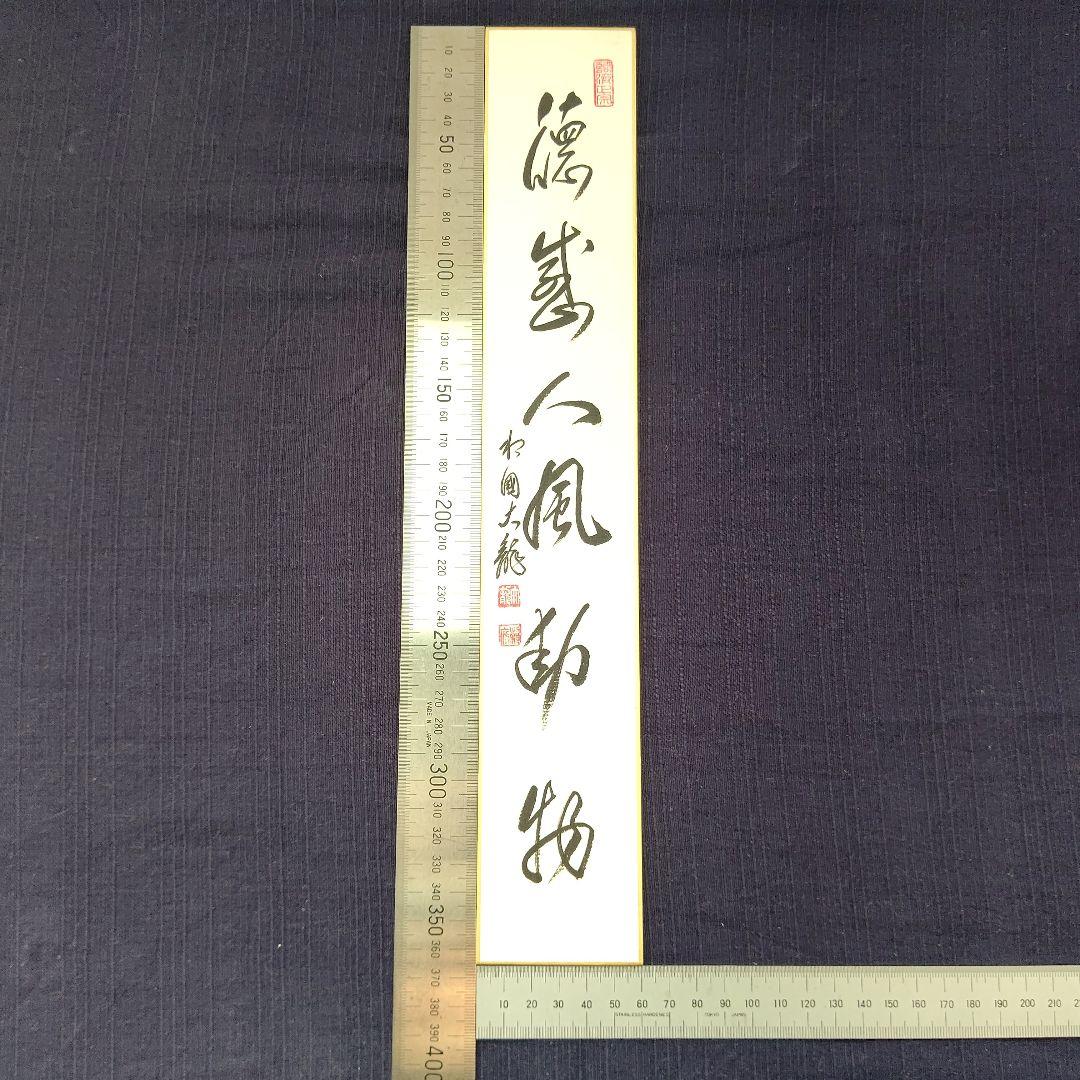 徳感人風動物
相國大龍
10 20 30 40 50 60 70 80 90 100 110 120 130 140 150 60 170 180 190 200 210 220 230 240 250 260 270 280 290 300 310 320 330 340 350 360 370 380 390 400
MADE IN JAPAN
10 20 30 40 50 60 70 80 90 100 110 120 130 140 150 160 170 180 190 200 210
STAINLESS HARDENED TOKYO JAPAN